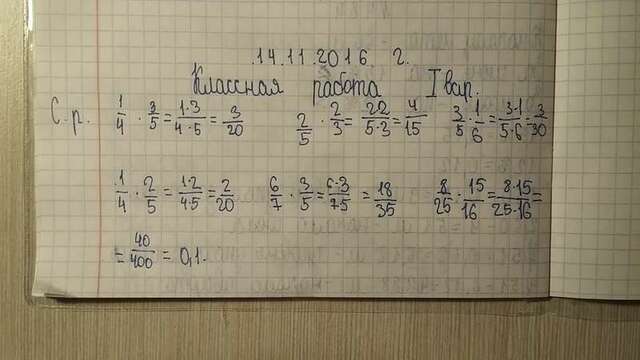 14.11.2016 г.
Классная работа
С.р. I вар.
1/4 · 3/5 = 1·3/4·5 = 3/20 2/5 · 2/3 = 2·2/5·3 = 4/15 3/5 · 1/6 = 3·1/5·6 = 3/30
1/4 · 2/5 = 1·2/4·5 = 2/20 6/7 · 3/5 = 6·3/7·5 = 18/35 8/25 · 15/16 = 8·15/25·16 =
= 40/400 = 0,1.